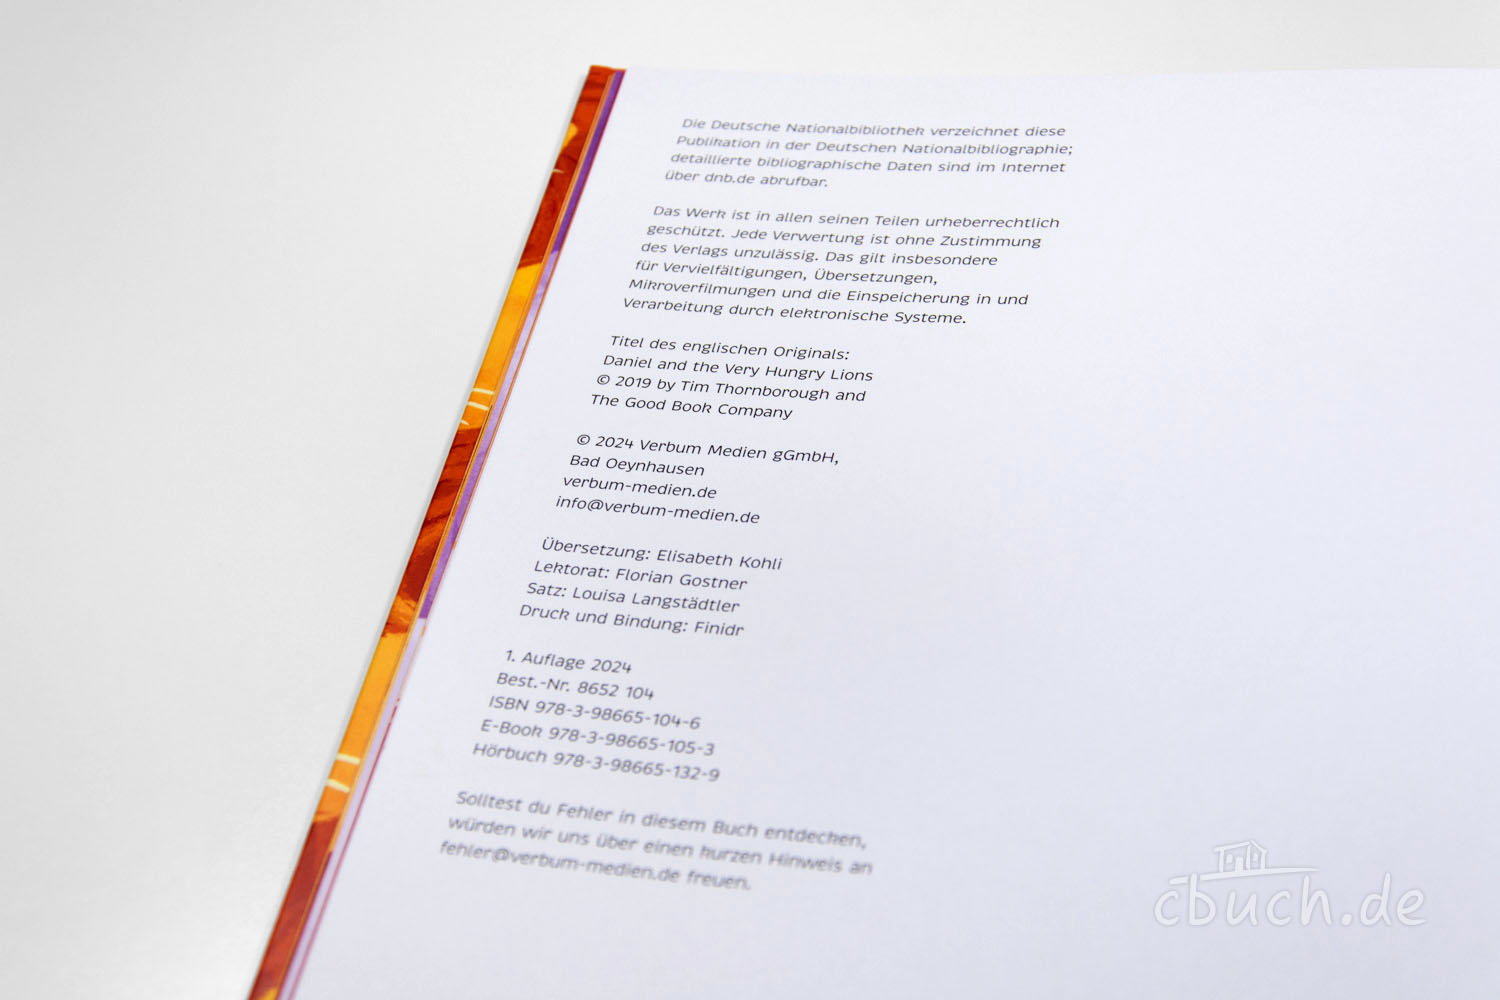 Die Deutsche Nationalbibliothek verzeichnet diese
Publikation in der Deutschen Nationalbibliographie;
detaillierte bibliographische Daten sind im Internet
über dnb.de abrufbar.
Das Werk ist in allen seinen Teilen urheberrechtlich
geschützt. Jede Verwertung ist ohne Zustimmung
des Verlags unzulässig. Das gilt insbesondere
für Vervielfältigungen, Übersetzungen,
Mikroverfilmungen und die Einspeicherung in und
Verarbeitung durch elektronische Systeme.
Titel des englischen Originals:
Daniel and the Very Hungry Lions
© 2019 by Tim Thornborough and
The Good Book Company
© 2024 Verbum Medien gGmbH,
Bad Oeynhausen
verbum-medien.de
info@verbum-medien.de
Übersetzung: Elisabeth Kohli
Lektorat: Florian Gostner
Satz: Louisa Langstädtler
Druck und Bindung: Finidr
1. Auflage 2024
Best.-Nr. 8652 104
ISBN 978-3-98665-104-6
E-Book 978-3-98665-105-3
Hörbuch 978-3-98665-132-9
Solltest du Fehler in diesem Buch entdecken,
würden wir uns über einen kurzen Hinweis an
fehler@verbum-medien.de freuen.
cbuch.de